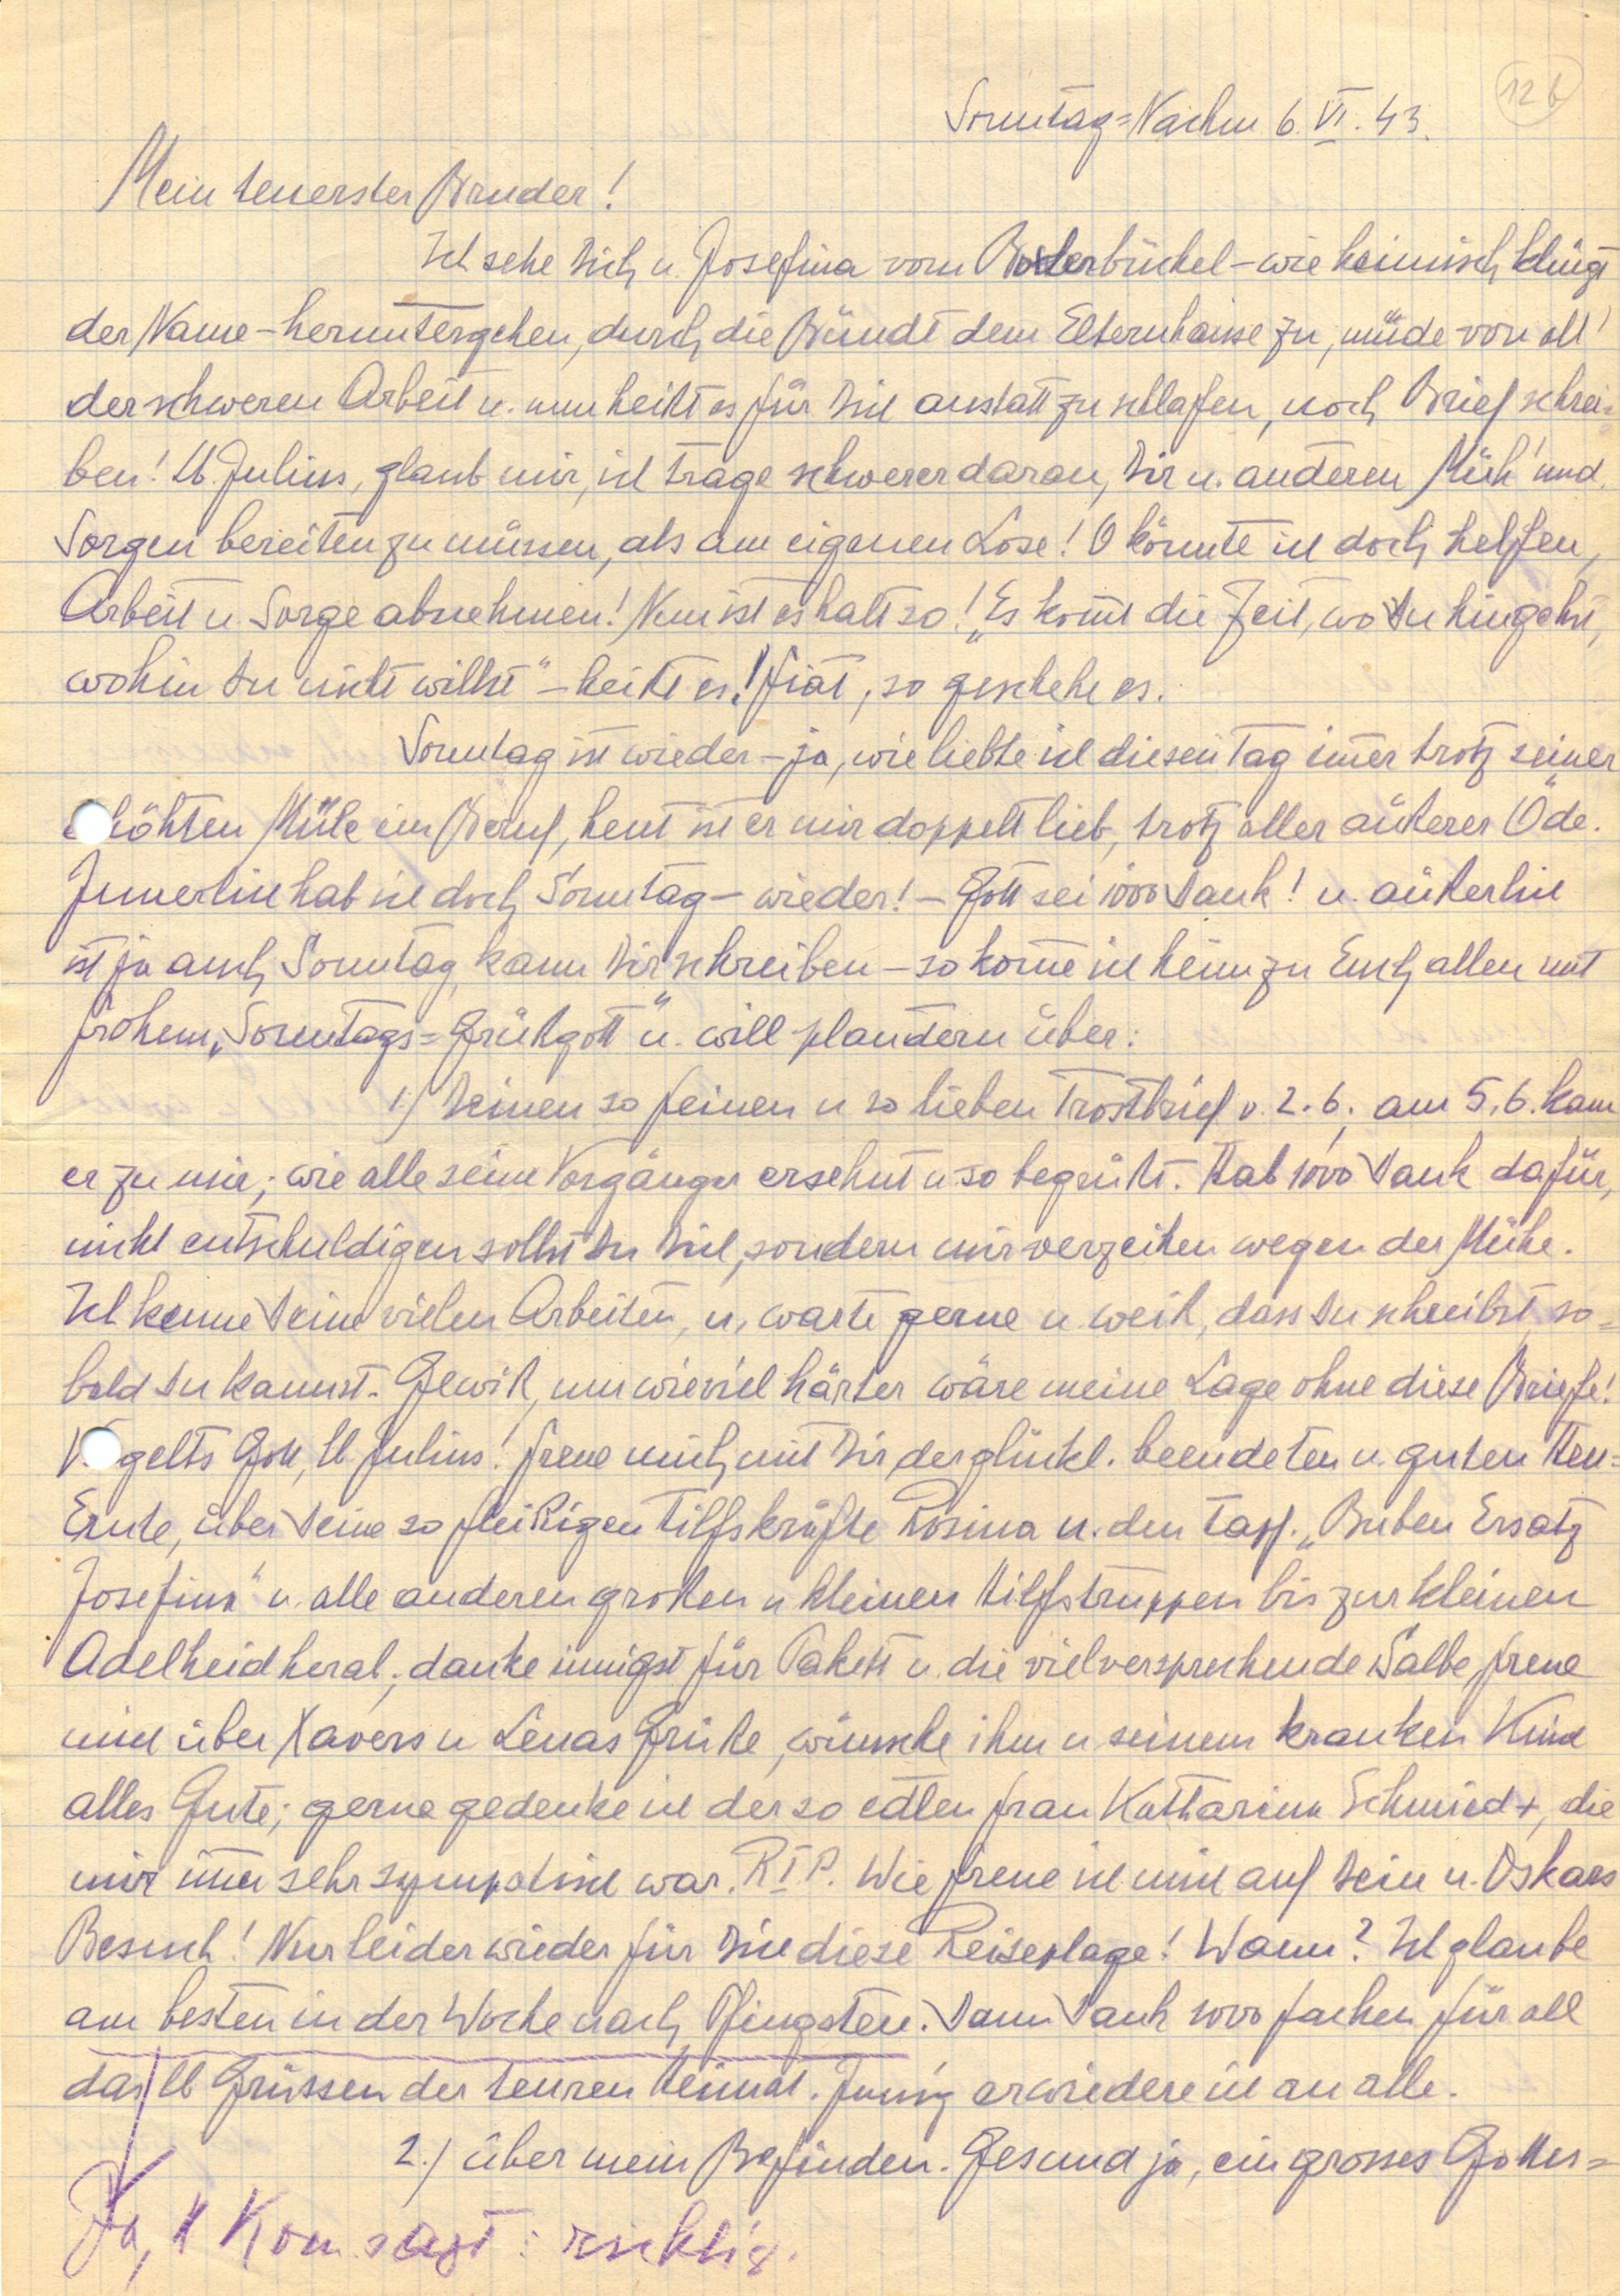 12 b
Sonntag=Nachm 6. VI. 43.
Mein teuerster Bruder!
Ich sehe Dich u. Josefina vom brückel – wie heimisch klingt
der Name – heruntergehen, durch die Bündt dem Elternhause zu, müde von all'
der schweren Arbeit u. nun heißt es für Dich anstatt zu schlafen, noch Brief schrei=
ben! Lb. Julius, glaub mir, ich trage schwerer daran, Dir u. anderen Müh' und
Sorgen bereiten zu müssen, als am eigenen Lose! O könnte ich doch helfen,
Arbeit u. Sorge abnehmen! Nun ist es halt so! „Es kom̅t die Zeit, wo Du hingehst,
wohin Du nicht willst" – heißt es! Fiat, so geschehe es.
Sonntag ist wieder – ja, wie liebte ich diesen Tag im̅er trotz seiner
erhöhten Mühe im Beruf, heut ist er mir doppelt lieb, trotz aller äußerer Öde.
Innerlich hab ich doch Sonntag – wieder! – Gott sei 1000 Dank! u. äußerlich
ist ja auch Sonntag, kann Dir schreiben – so kom̅e ich heim zu Euch allen mit
frohem „Sonntags=Grüßgott" u. will plaudern über:
1.) Deinen so feinen u so lieben Trostbrief v. 2.6., am 5.6. kam
er zu mir; wie alle seine Vorgänger ersehnt u so begrüßt. Hab 1000 Dank dafür,
nicht entschuldigen sollst Du Dich, sondern mir verzeihen wegen der Mühe.
Ich kenne Deine vielen Arbeiten, u. warte gerne u weiß, dass Du schreibst, so=
bald Du kannst. Gewiß, um wieviel härter wäre meine Lage ohne diese Briefe!
Vergelts Gott, lb Julius! Freue mich mit Dir der glückl. beendeten u. guten Heu=
Ernte, über Deine so fleißigen Hilfskräfte Rosina u. den tapf. „Buben Ersatz
Josefina" u. alle anderen großen u kleinen Hilfstruppen bis zur kleinen
Adelheid herab; danke innigst für Pakett u. die vielversprechende Salbe, freue
mich über Xavers u Lenas Grüße, wünsche ihm u seinem kranken Kind
alles Gute; gerne gedenke ich der so edlen Frau Katharina Schmied +, die
mir im̅er sehr sympatisch war. R I P. Wie freue ich mich auf Dein u. Oskars
Besuch! Nur leider wieder für Dich diese Reiseplage! Wann? Ich glaube
am besten in der Woche nach Pfingsten. Dann Dank 1000 fachen für all
das lb Grüssen der teuren Heimat. Innig erwiedere ich an alle.
2.) über mein Befinden. Gesund ja, ein grosses Gottes=
Ja, H Kom. sagt: richtig.